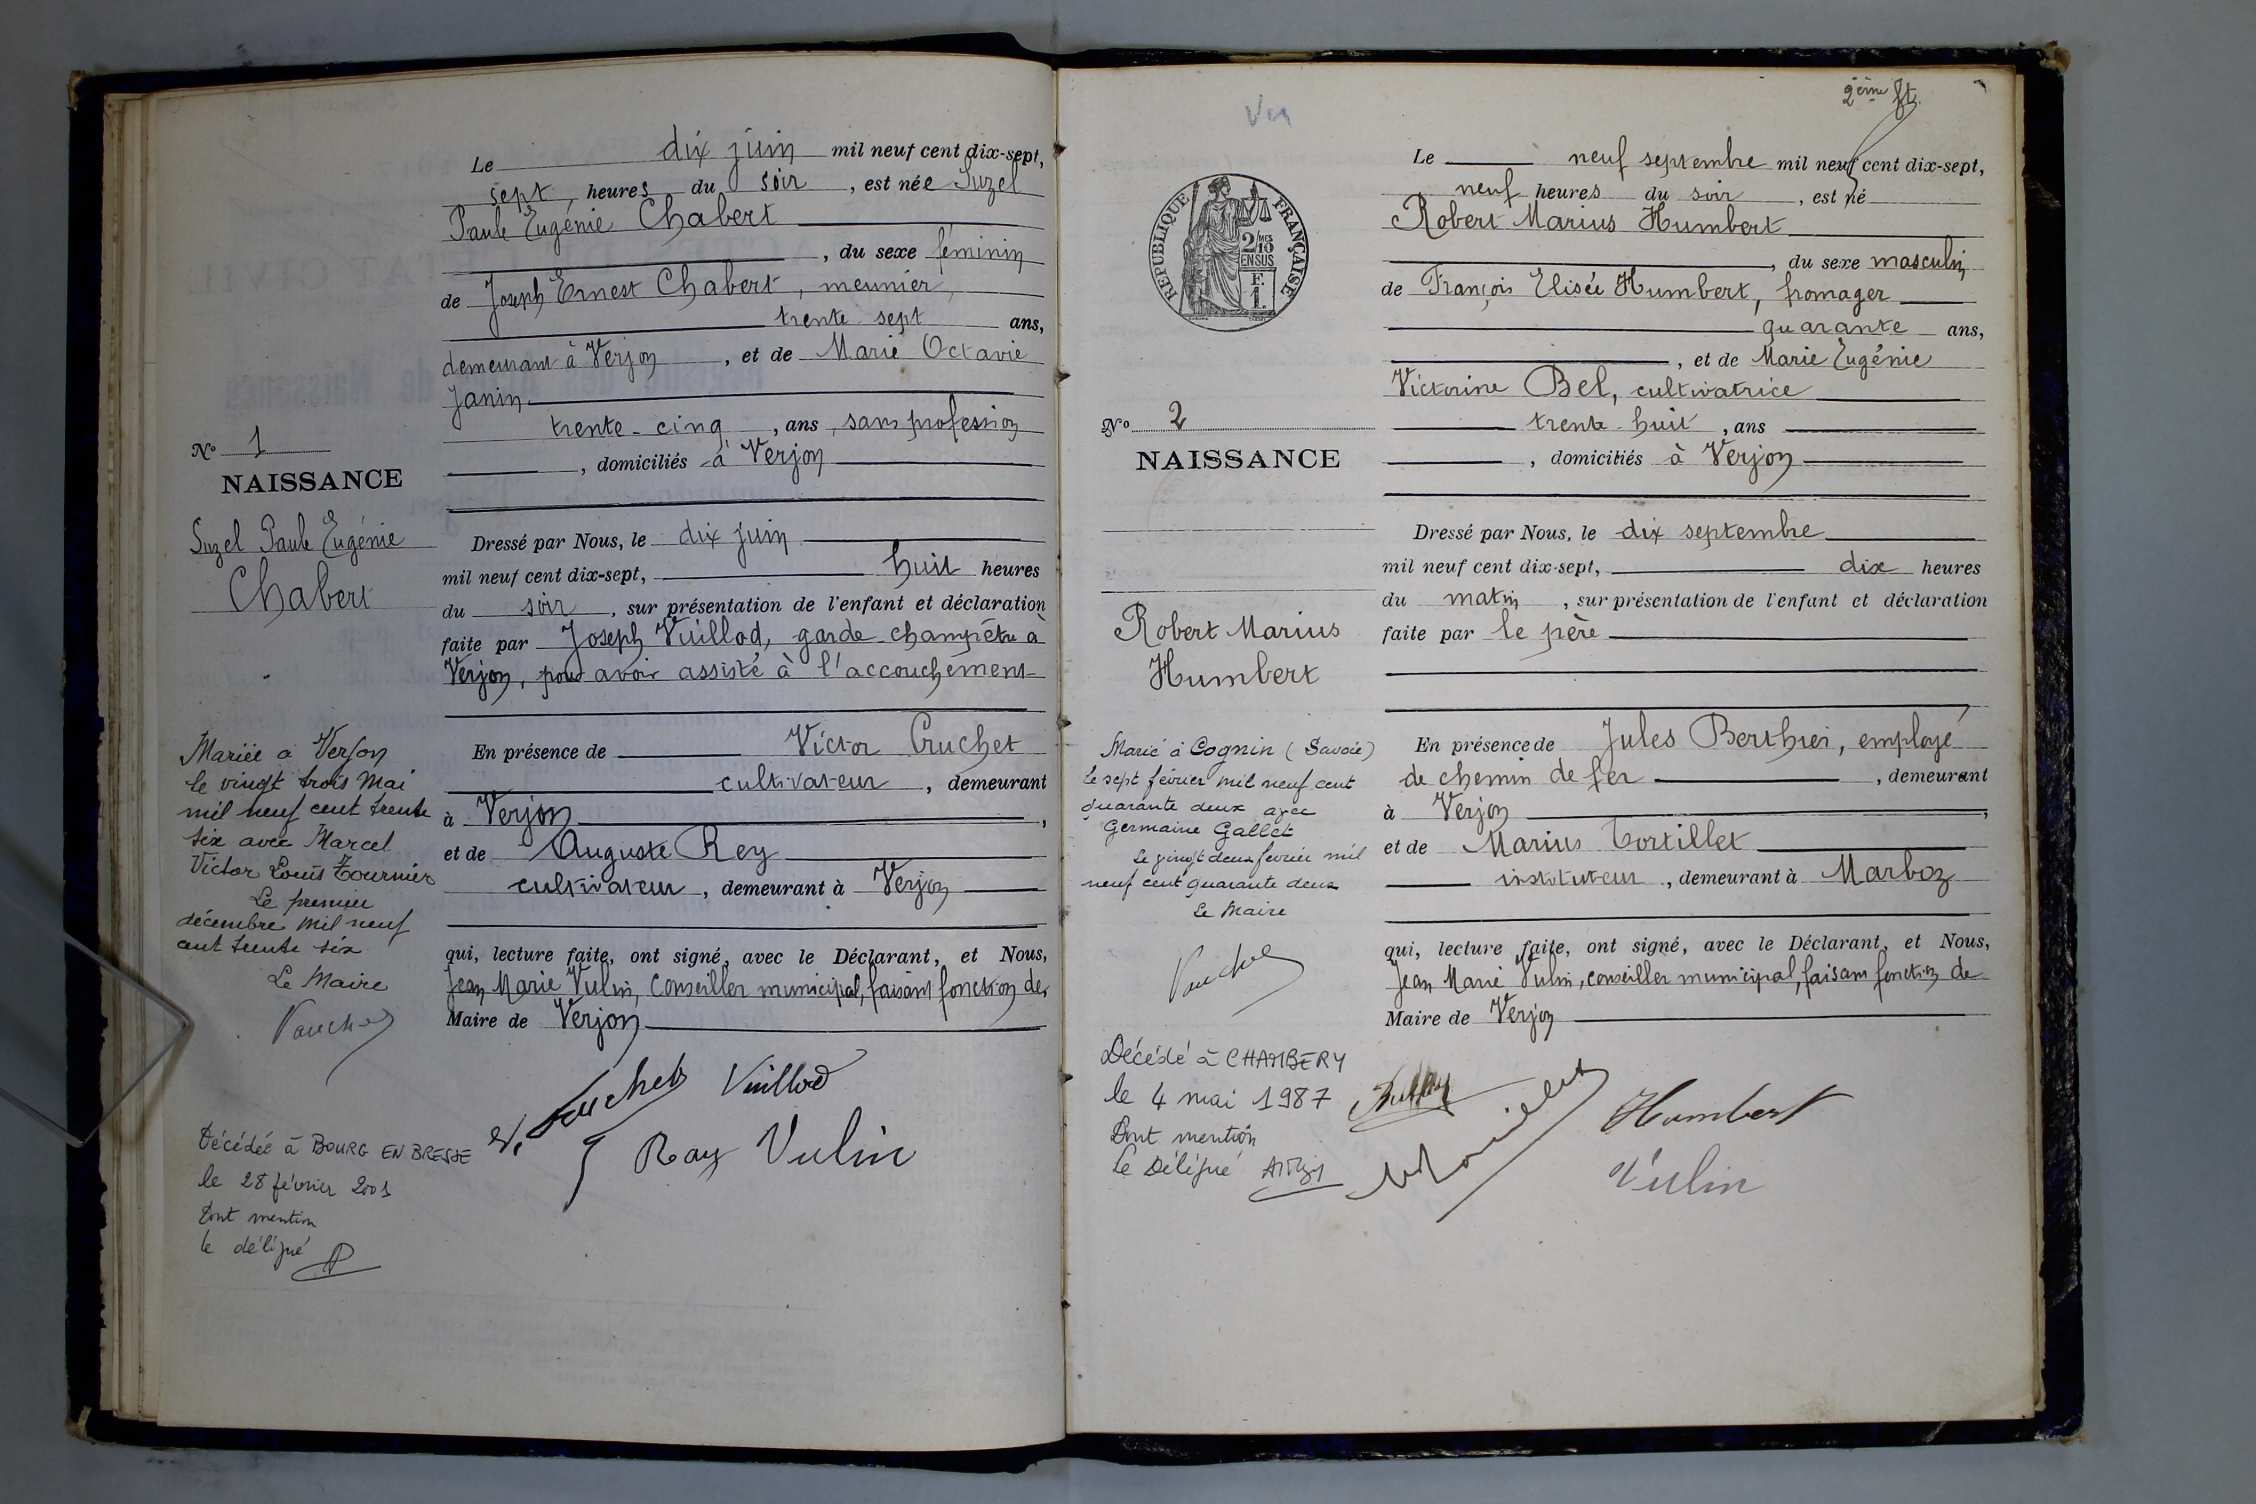 Le dix juin mil neuf cent dix-sept,
sept, heures du soir, est née Suzel
Paule Eugénie Chabert
, du sexe féminin
de Joseph Ernest Chabert, meunier,
trente sept ans,
demeurant à Verjon, et de Marie Octavie
Janin
trente-cinq, ans, sans profession
, domiciliés à Verjon
N° 1
NAISSANCE
Suzel Paule Eugénie
Chabert
Dressé par Nous, le dix juin
mil neuf cent dix-sept, huit heures
du soir, sur présentation de l'enfant et déclaration
faite par Joseph Vuillod, garde champêtre à
Verjon, pour avoir assisté à l'accouchement
En présence de Victor Cruchet
cultivateur, demeurant
à Verjon,
et de Auguste Rey
cultivateur, demeurant à Verjon
qui, lecture faite, ont signé, avec le Déclarant, et Nous,
Jean Marie Vulin, Conseiller municipal, faisant fonction de,
Maire de Verjon
Vuillod
Rey Vulin
Mariée à Verjon
le vingt trois Mai
mil neuf cent trente
six avec Marcel
Victor Louis Tournier
Le premier
décembre mil neuf
cent trente six
Le Maire
Décédée à BOURG EN BRESSE
le 28 février 2001
Dont mention
le délégué
2ème
Le neuf septembre mil neuf cent dix-sept,
neuf heures du soir, est né
Robert Marius Humbert
, du sexe masculin
de François Elisée Humbert, fromager
quarante ans,
, et de Marie Eugénie
Victorine Bel, cultivatrice
trente-huit, ans
, domiciliés à Verjon
REPUBLIQUE FRANÇAISE
2/10 MES
EN SUS
F.
1.
N° 2
NAISSANCE
Robert Marius
Humbert
Dressé par Nous, le dix septembre
mil neuf cent dix-sept, dix heures
du matin, sur présentation de l'enfant et déclaration
faite par le père
En présence de Jules Berthier, employé
de chemin de fer, demeurant
à Verjon,
et de Marius Tortillet
instituteur, demeurant à Marboz
qui, lecture faite, ont signé, avec le Déclarant, et Nous,
Jean Marie Vulin, conseiller municipal, faisant fonction de
Maire de Verjon
Humbert
Vulin
Marié à Cognin (Savoie)
le sept février mil neuf cent
quarante deux avec
Germaine Gallet
Le vingt deux février mil
neuf cent quarante deux
Le Maire
Décédé à CHAMBERY
le 4 mai 1987
Dont mention
Le Délégué